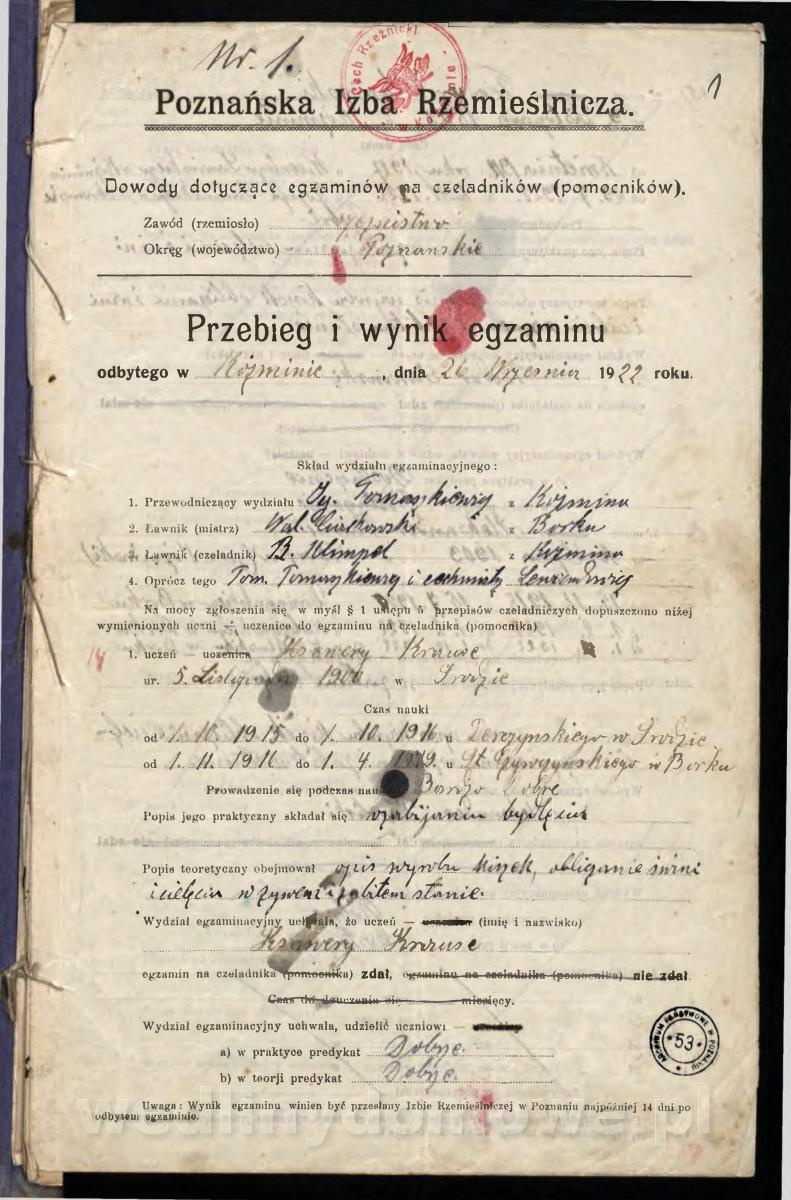 Nr. 1.
Cech Rzeźnicki w Koźminie
1
Poznańska Izba Rzemieślnicza.
Dowody dotyczące egzaminów na czeladników (pomocników).
Zawód (rzemiosło)
Okręg (województwo) Poznanskie
Przebieg i wynik egzaminu
odbytego w Koźminie, dnia 26 Wrzesnia 1922 roku.
Skład wydziału egzaminacyjnego:
1. Przewodniczący wydziału Ig. Tomaszkiewicz z Koźmina
2. Ławnik (mistrz) Wal. z Borku
3. Ławnik (czeladnik) B. Klimpel z Koźmina
4. Oprócz tego Tom. Tomaszkiewicz i cechmistrz
Na mocy zgłoszenia się w myśl § 1 ustępu 5 przepisów czeladniczych dopuszczono niżej
wymienionych uczni — uczenice do egzaminu na czeladnika (pomocnika)
1. uczeń — uczenica Ksawery Krause
ur. 5. Listopada 1900 w Srodzie
Czas nauki
od 1. 10. 1915 do 1. 10. 1916 u w Srodzie
od 1. 11. 1916 do 1. 4. 1919. u St. w Borku
Prowadzenie się podczas nauki Bardzo Dobre
Popis jego praktyczny składał się w zabijaniu bydlęcia
Popis teoretyczny obejmował opis wyrobu kiszek, obliganie świni
i cielęcia w żywem i zabitem stanie.
Wydział egzaminacyjny uchwala, że uczeń — uczenica (imię i nazwisko)
Ksawery Krause
egzamin na czeladnika (pomocnika) zdał, egzaminu na czeladnika (pomocnika) nie zdał.
Czas do douczenia się miesięcy.
Wydział egzaminacyjny uchwala, udzielić uczniowi —
a) w praktyce predykat Dobrze.
b) w teorji predykat Dobrze.
ARCHIWUM PAŃSTWOWE W POZNANIU 53
Uwaga: Wynik egzaminu winien być przesłany Izbie Rzemieślniczej w Poznaniu najpóźniej 14 dni po
odbytem egzaminie.